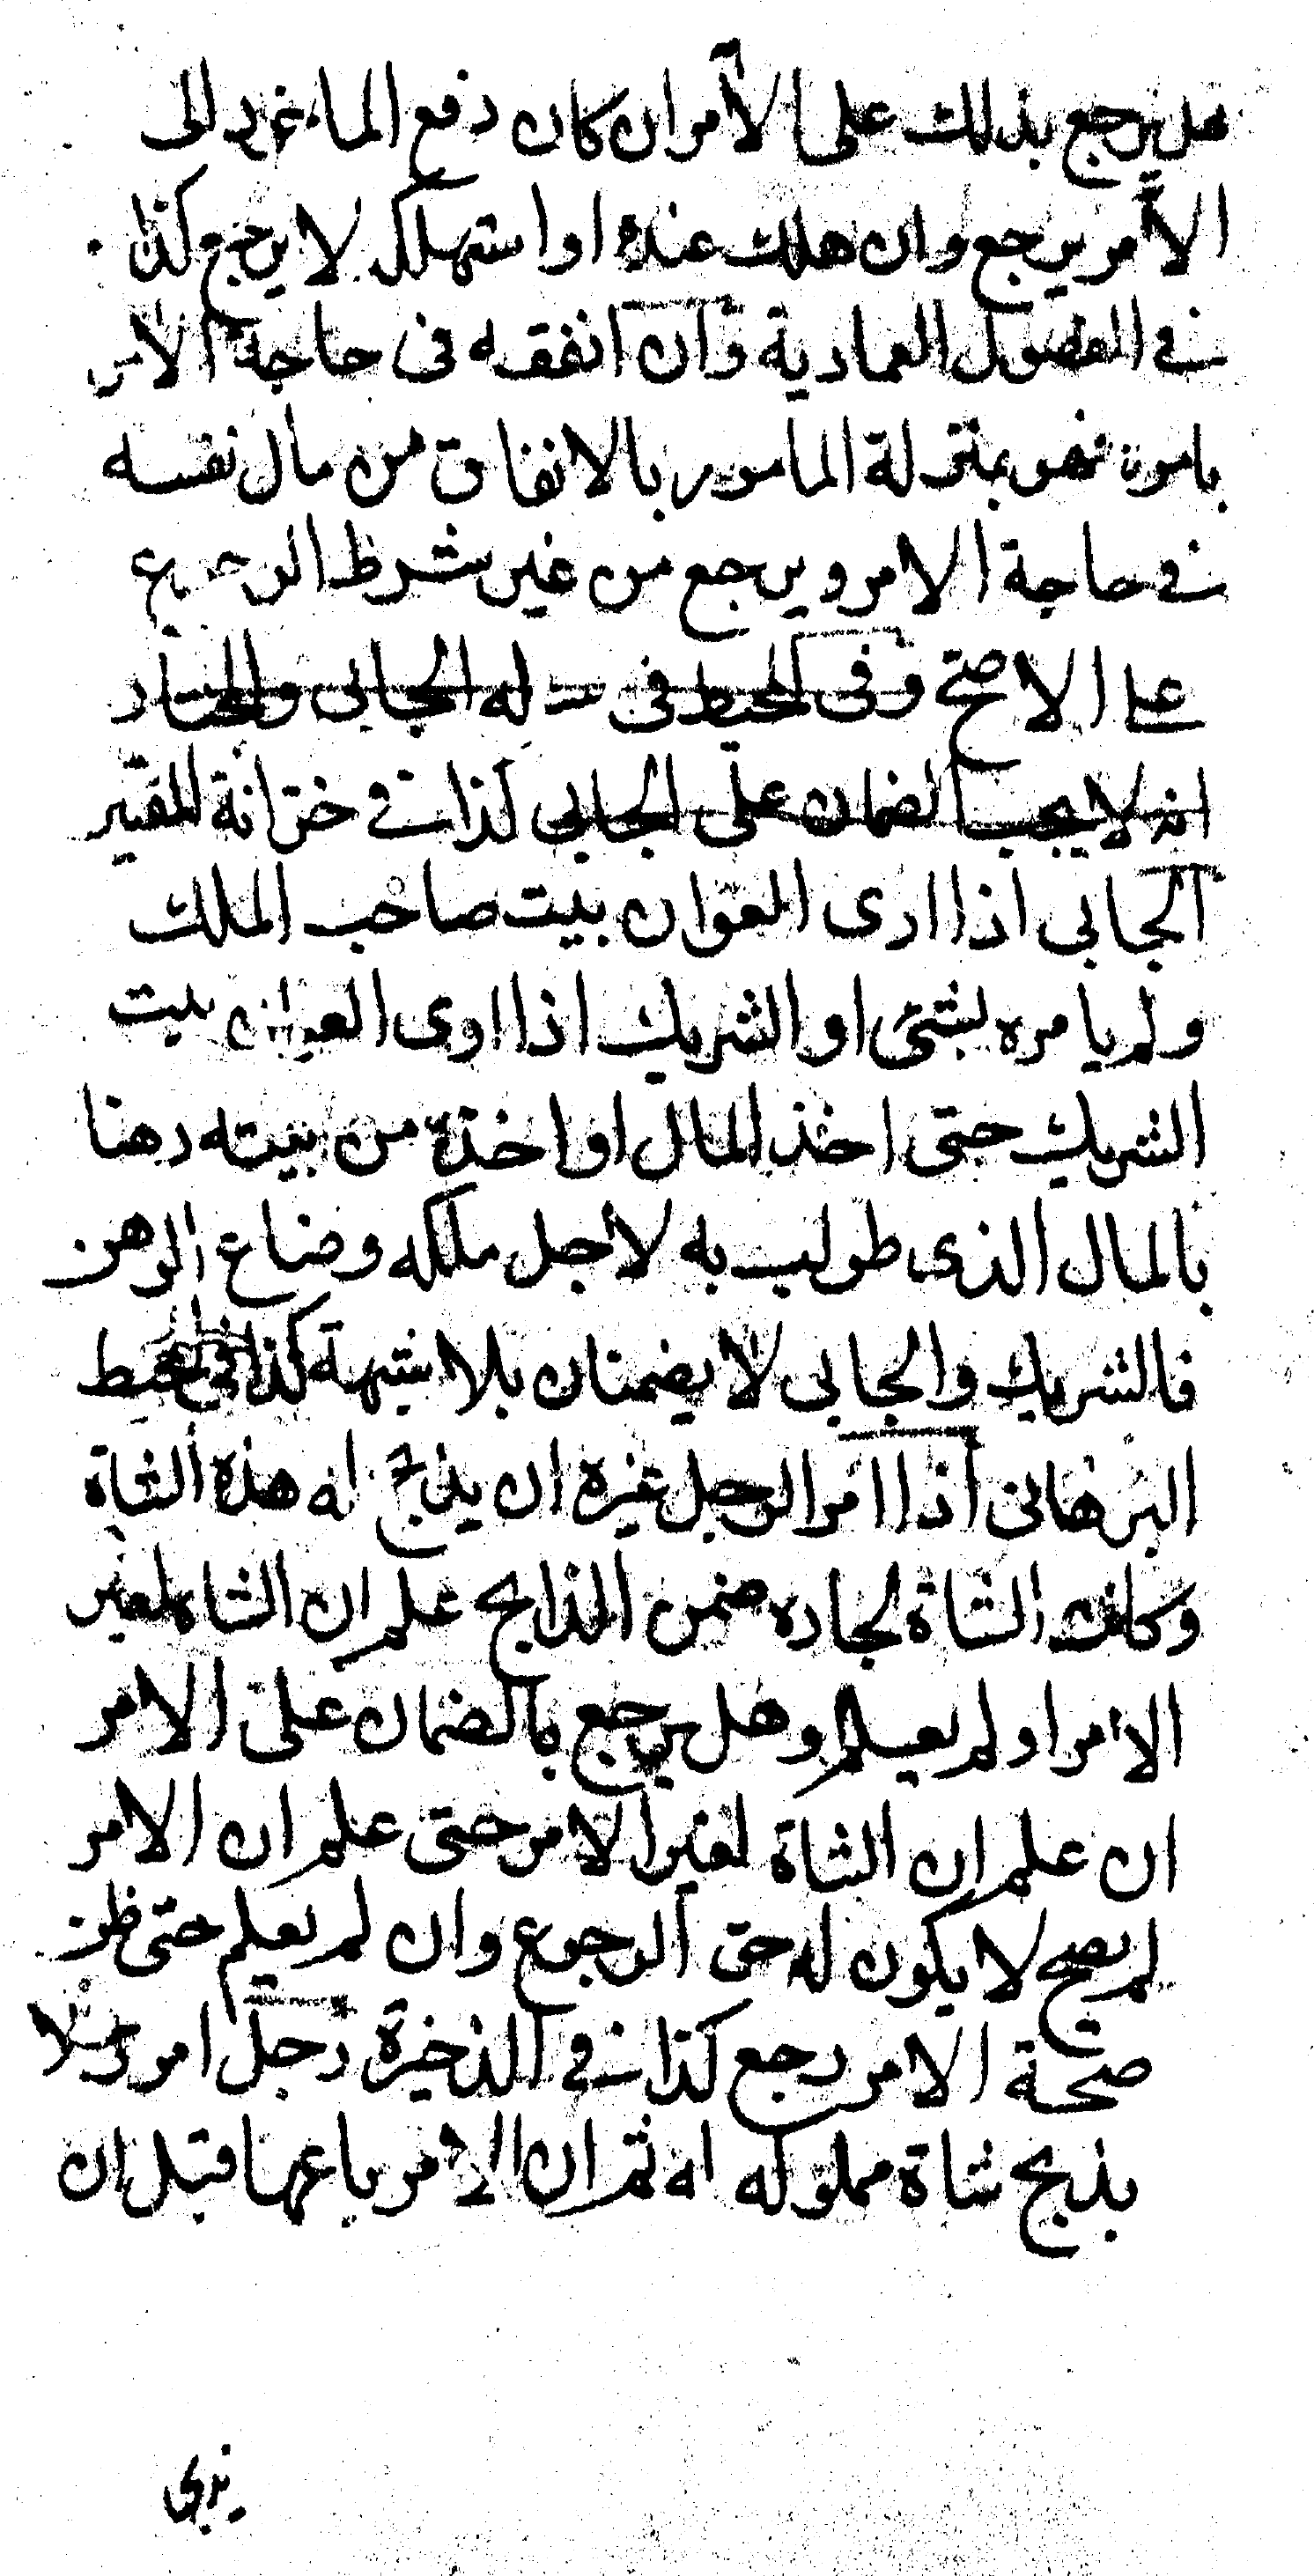 هل يرجع بذلك على الآمر ان كان دفع المأمور الى
الآمر يرجع وان هلك عنده او استهلكه لا يرجع كذا
في الفصول العمادية وان انفقه في حاجة الامر
بامره فهو بمنزلة المامور بالانفاق من مال نفسه
في حاجة الامر ويرجع من غير شرط الرجوع
على الاصح وفى المحيط فى له الجابى والمختار
انه لا يجب الضمان على الجابى كذا في خزانة المفتين
الجابى اذا ارى العوان بيت صاحب الملك
ولم يامره بشئ او الشريك اذا اوى العوان بيت
الشريك حتى اخذ المال او اخذه من بيته رهنا
بالمال الذى طولب به لاجل ملكه وضاع الرهن
فالشريك والجابى لا يضمنان بلا شبهة كذا في المحيط
البرهانى اذا امر الرجل غيره ان يذبح له هذه الشاة
وكانت الشاة لجاره ضمن الذابح علم ان الشاة لغير
الامر او لم يعلم وهل يرجع بالضمان على الامر
ان علم ان الشاة لغير الامر حتى علم ان الامر
لم يصح لا يكون له حق الرجوع وان لم يعلم حتى ظن
صحة الامر رجع كذا في الذخيرة رجل امر رجلا
بذبح شاة مملوكه له ثم ان الامر باعها قبل ان